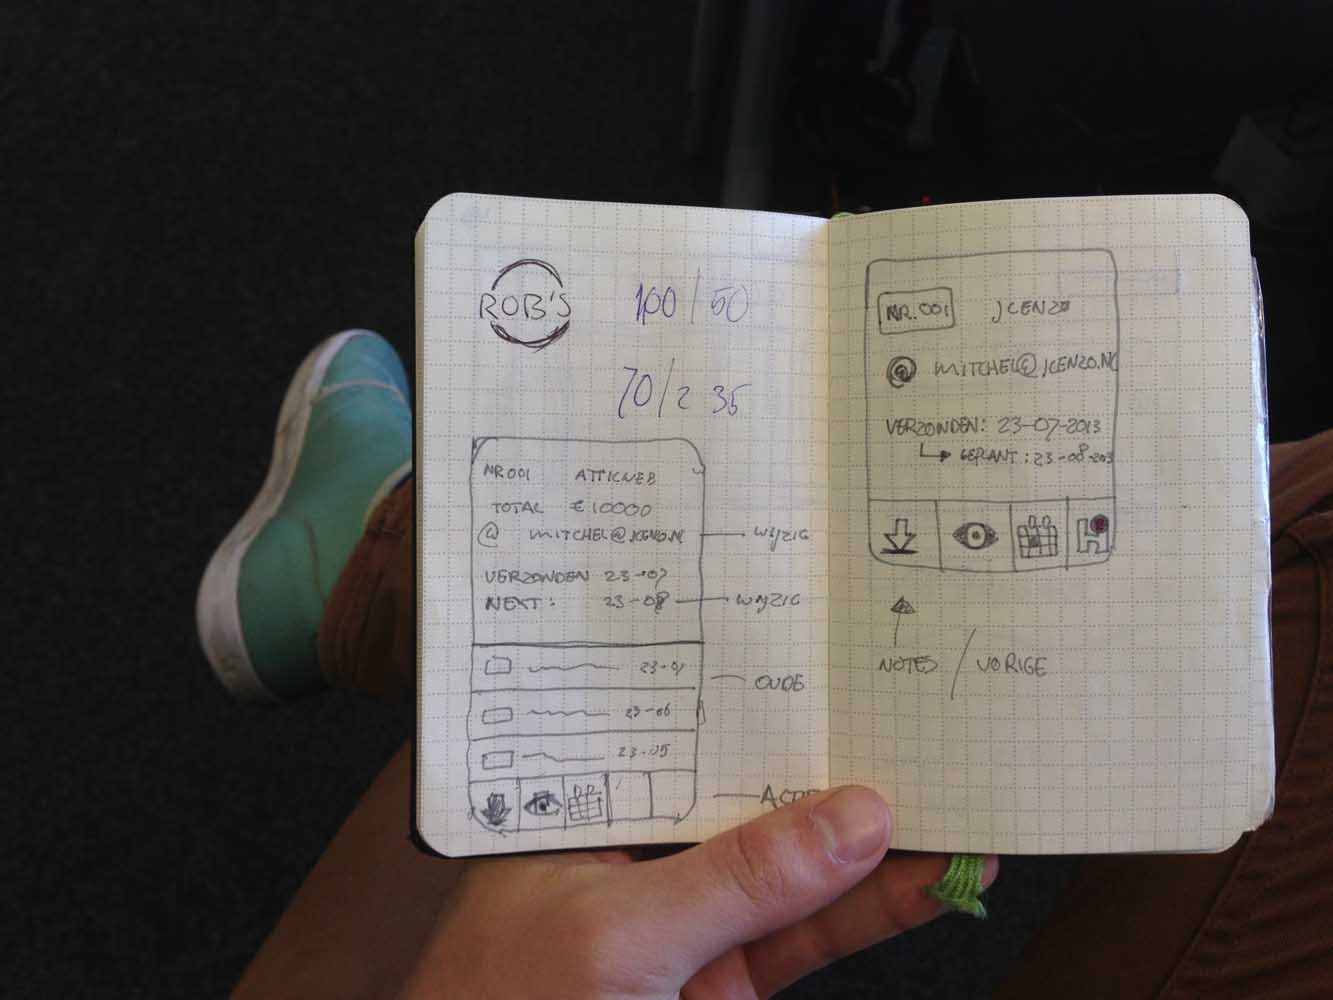 ROB'S
100/50
70/2 35
NR001 ATTICNEB
TOTAL €10000
@ MITCHEL@JCENZO.NL
WIJZIG
VERZONDEN 23-07
NEXT: 23-08
WIJZIG
23-07
OUDE
23-06
23-05
NR.001 JCENZO
@ MITCHEL@JCENZO.NL
VERZONDEN: 23-07-2013
GEPLANT: 23-08-2013
NOTES / VORIGE